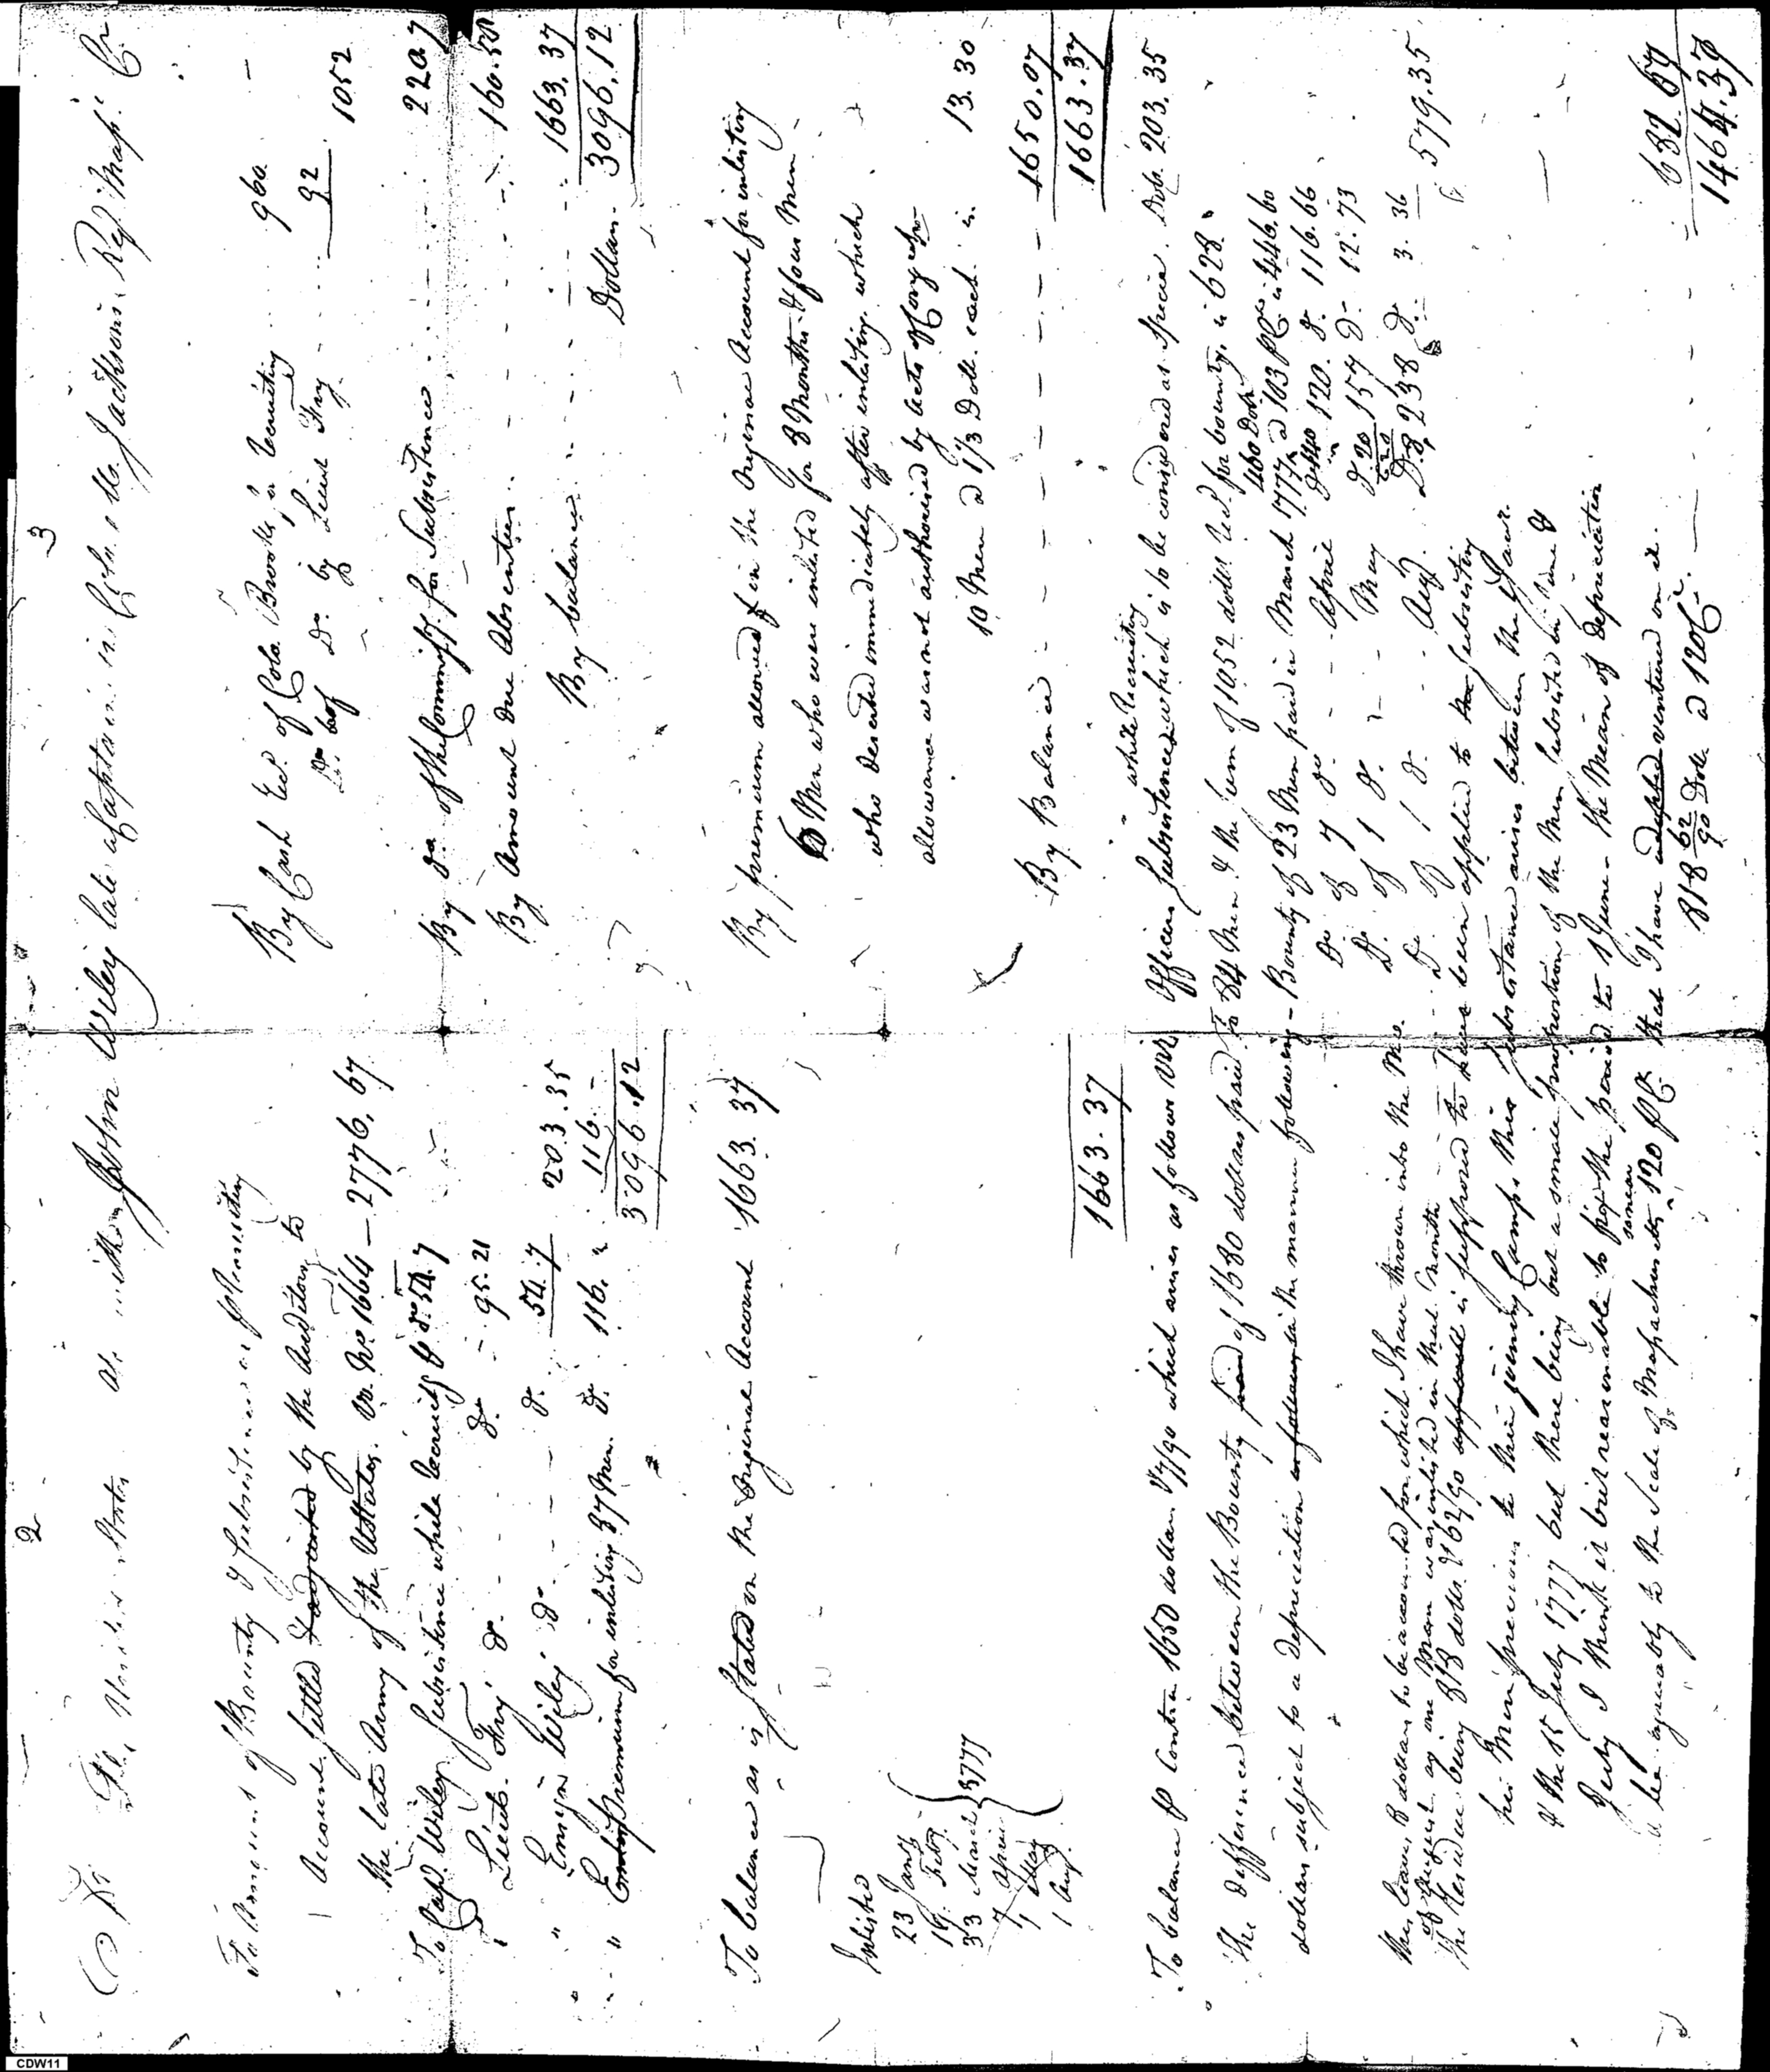 2
3
Dr The United States in acct with John Wiley late Captain in Colo. M. Jacksons Regt Masss. Cr
To Amount of Bounty & Subsistence as pr recruiting
Account settled & adjusted by the Auditors to
the late Army of the UStates. Vo. No 1664 — 2776.67
To Capt. Wiley Subsistence while recruitg pr do 54.7
" Lieut. Fry do. do. 95.21
" Ensign Wiley do. do. 54.7 203.35
" Premium for inlisting 37 Men do. 116. " 116.-
3096.12
By Cash Recd. of Colo. Brooks, a recruiting 960
Do. of Do. by Lieut Fry 92
1052
By do of the Commissy for Subsistence 220.7
By Amount due Absentees 160.50
By balance 1663.37
Dollars 3096.12
To balance as is stated in the Original Account 1663.37
Inlisted
23 Jany
19. Feby.
33 March 1777
7 April
1 May
1 Augt.
1663.37
By premium allowed in the Original Account for inlisting
6 Men who were inlisted for 8 Months & four Men
who deserted immediately after inlisting, which
allowance was not authorised by Acts of Congress
10 Men a 1 1/3 Doll. each is 13.30
By Balance 1650.07
1663.37
To balance pr Contra 1650 dollars 7/90 which arises as follows Viz
The difference between the Bounty paid of 1680 dollars paid to 84 Men & the sum of 1052 dolls. Recd. for bounty, is 628.
dollars subject to a depreciation as follows in the manner following -
Officers Subsistence while recruiting which is to be considered as Specie. Dolr. 203.35
Bounty of 23 Men paid in March 1777 460 Dolr. a 103 pCt. is 446.60
Do. of 7 do. - - April Ditto in 120. do. 116.66
Do. of 1 do. - - May do. 20 in 157 do. 12.73
Do. of 1 do. - - Augt. Do. 8, 238 do. 3.36
579.35
this leaves 8 dollars to be accounted for which I have thrown into the Mo.
of August as one Man was inlisted in that month
The residue being 818 dolls. & 62/90 is supposed to have been applied to subsisting
his Men previous to their joining Camp. this subsistance arises between the 1 Janr.
& the 15 July 1777 but there being but a small proportion of the Men subsisted in June &
July I think it but reasonable to fix the period to 1 June - the Mean of depreciation
will be agreeably to the Scale of Massachusetts so near 120 pCt that I have adopted ventured on it.
818 62/90 Doll a 120 Ct. — 682.67
1464.37
CDW11